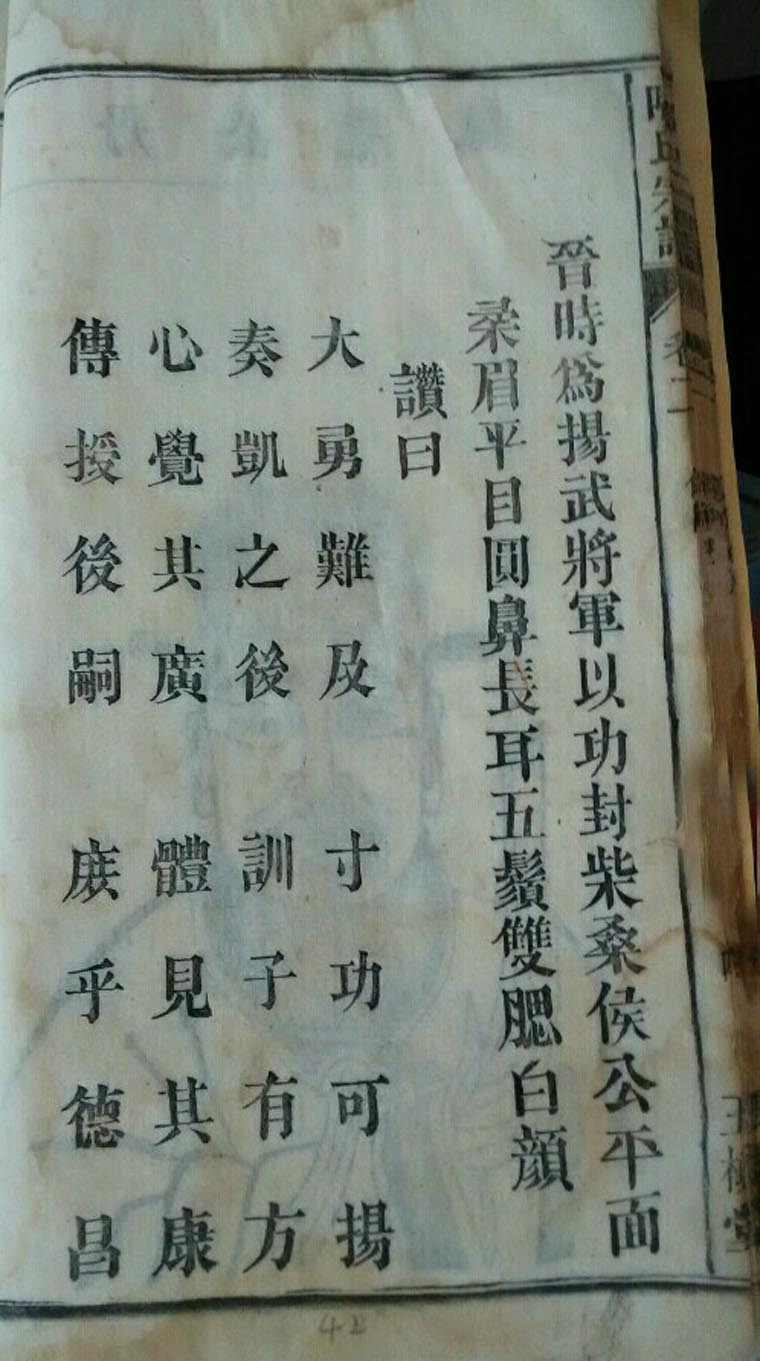 晉時爲揚武將軍以功封柴桑侯公平面
柔眉平目圓鼻長耳五鬚雙腮白顔
讚曰
大勇難及 寸功可揚
奏凱之後 訓子有方
心覺其廣 體見其康
傳授後嗣 庻乎德昌
卷二
42